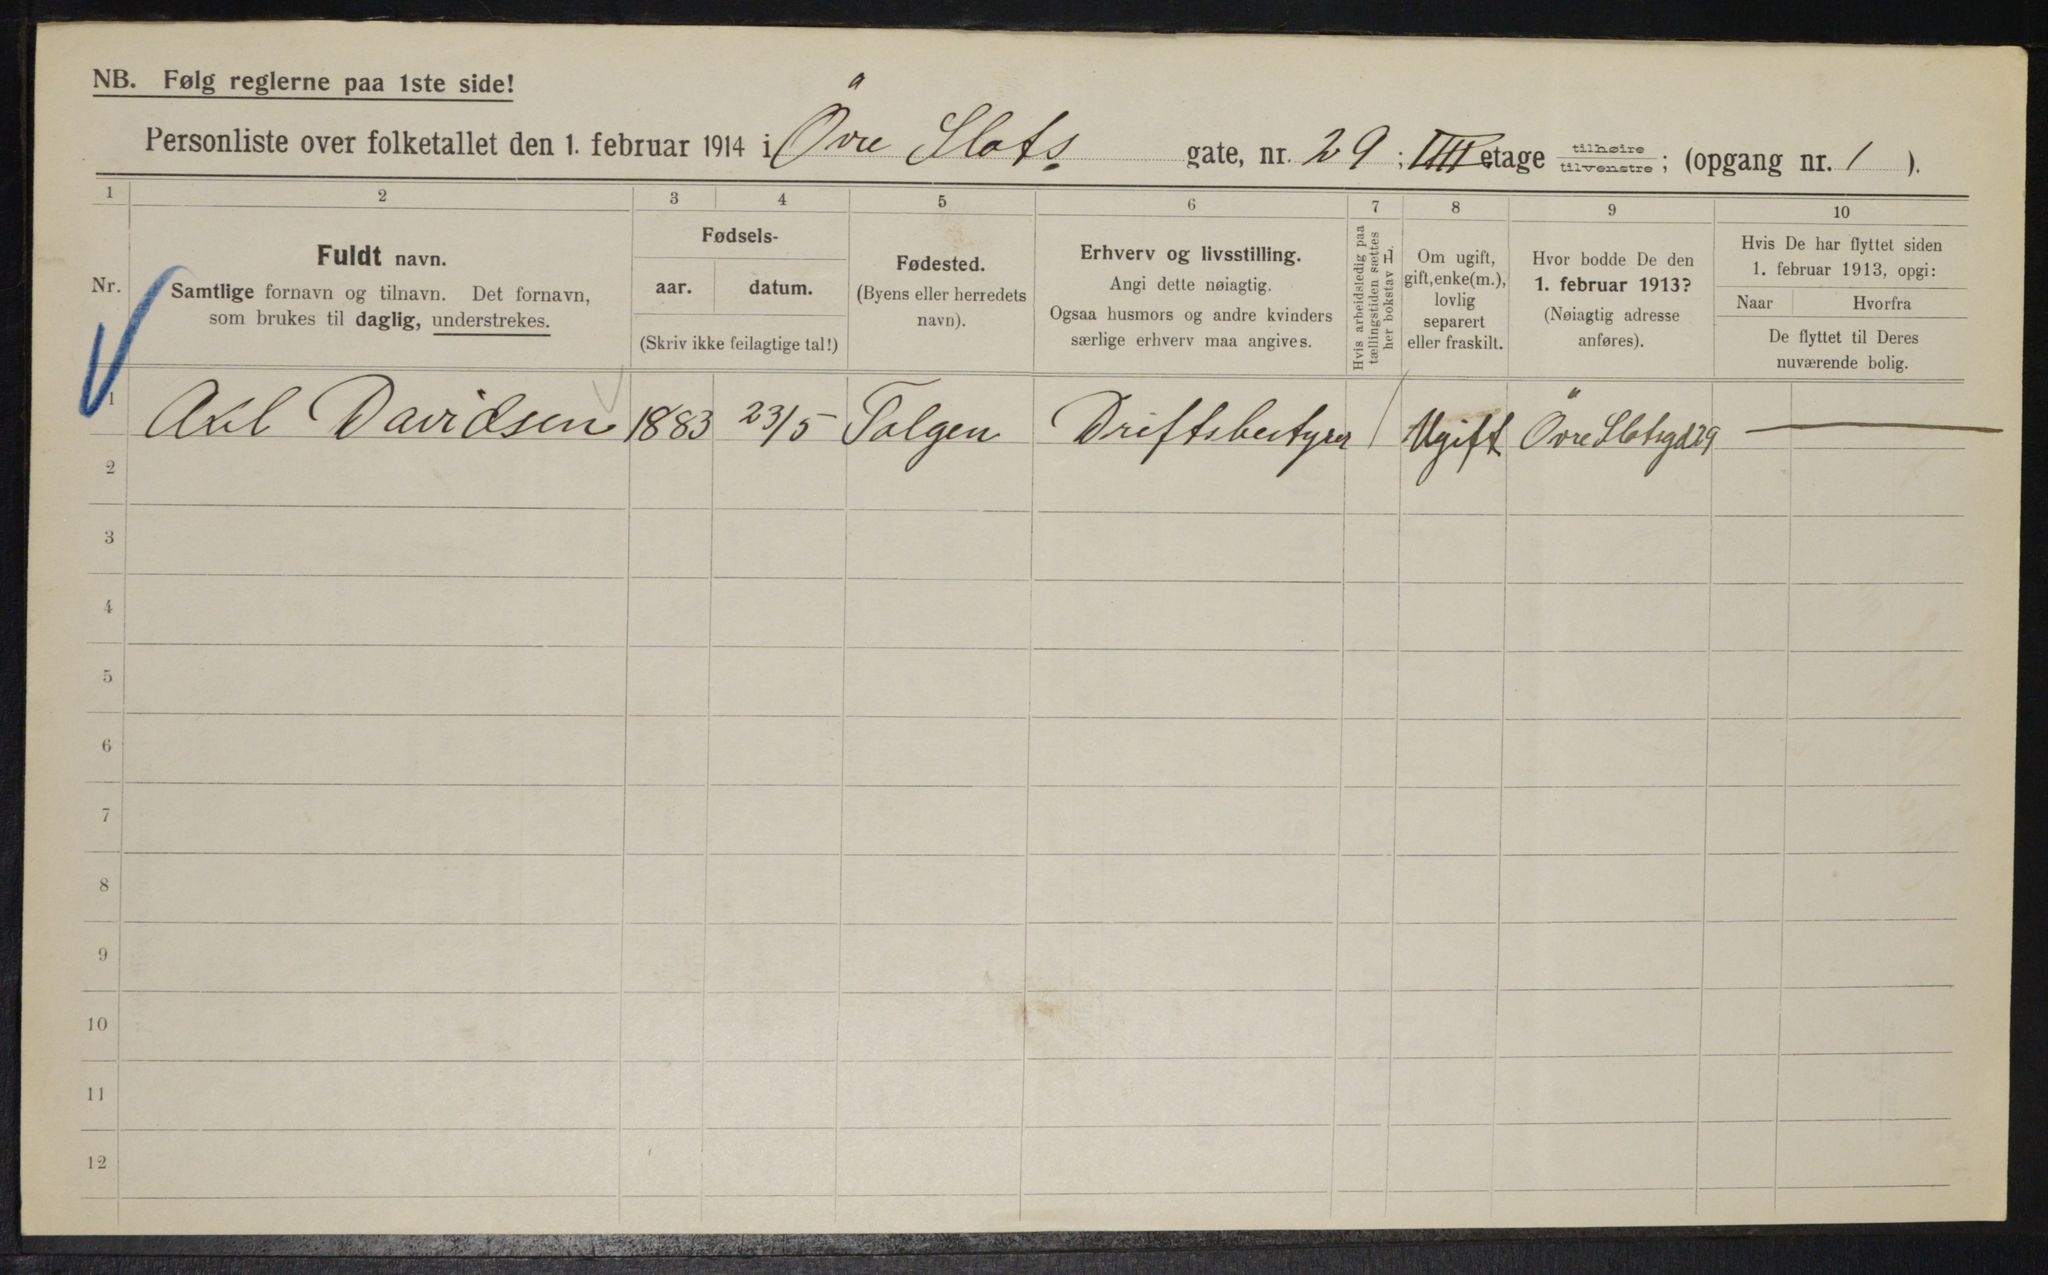 NB. Følg reglerne paa 1ste side!
Personliste over folketallet den 1. februar 1914 i Övre Slots gate, nr. 29; IIII etage tilhøire tilvenstre; (opgang nr. 1).
1 2 3 4 5 6 7 8 9 10
Nr.
Fuldt navn.
Samtlige fornavn og tilnavn. Det fornavn,
som brukes til daglig, understrekes.
Fødsels-
aar. datum.
(Skriv ikke feilagtige tal!)
Fødested.
(Byens eller herredets
navn).
Erhverv og livsstilling.
Angi dette nøiagtig.
Ogsaa husmors og andre kvinders
særlige erhverv maa angives.
Hvis arbeidsledig paa
tællingstiden sættes
her bokstav L.
Om ugift,
gift, enke(m.),
lovlig
separert
eller fraskilt.
Hvor bodde De den
1. februar 1913?
(Nøiagtig adresse
anføres).
Hvis De har flyttet siden
1. februar 1913, opgi:
Naar Hvorfra
De flyttet til Deres
nuværende bolig.
1 Axel Davidsen 1883 23/5 Tolgen Driftsbestyrer / Ugift Övre Slotsgd 29
2
3
4
5
6
7
8
9
10
11
12